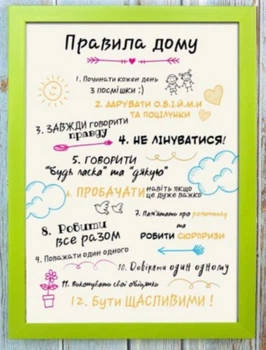 Правила дому
1. Починати кожен день
з посмішки :)
2. ДАРУВАТИ О.Б.І.Й.М.И
ТА ПОЦІЛУНКИ
3. ЗАВЖДИ ГОВОРИТИ
правду
4. НЕ ЛІНУВАТИСЯ!
5. ГОВОРИТИ
"будь ласка" та "дякую"
6. ПРОБАЧАТИ навіть якщо
це дуже важко
7. Пам'ятати про
та
РОБИТИ СЮРПРИЗИ
8. Робити
все разом
9. Поважати один одного
10. Довіряти один одному
11. Виконувати свої обіцянки
12. Бути ЩАСЛИВИМИ!